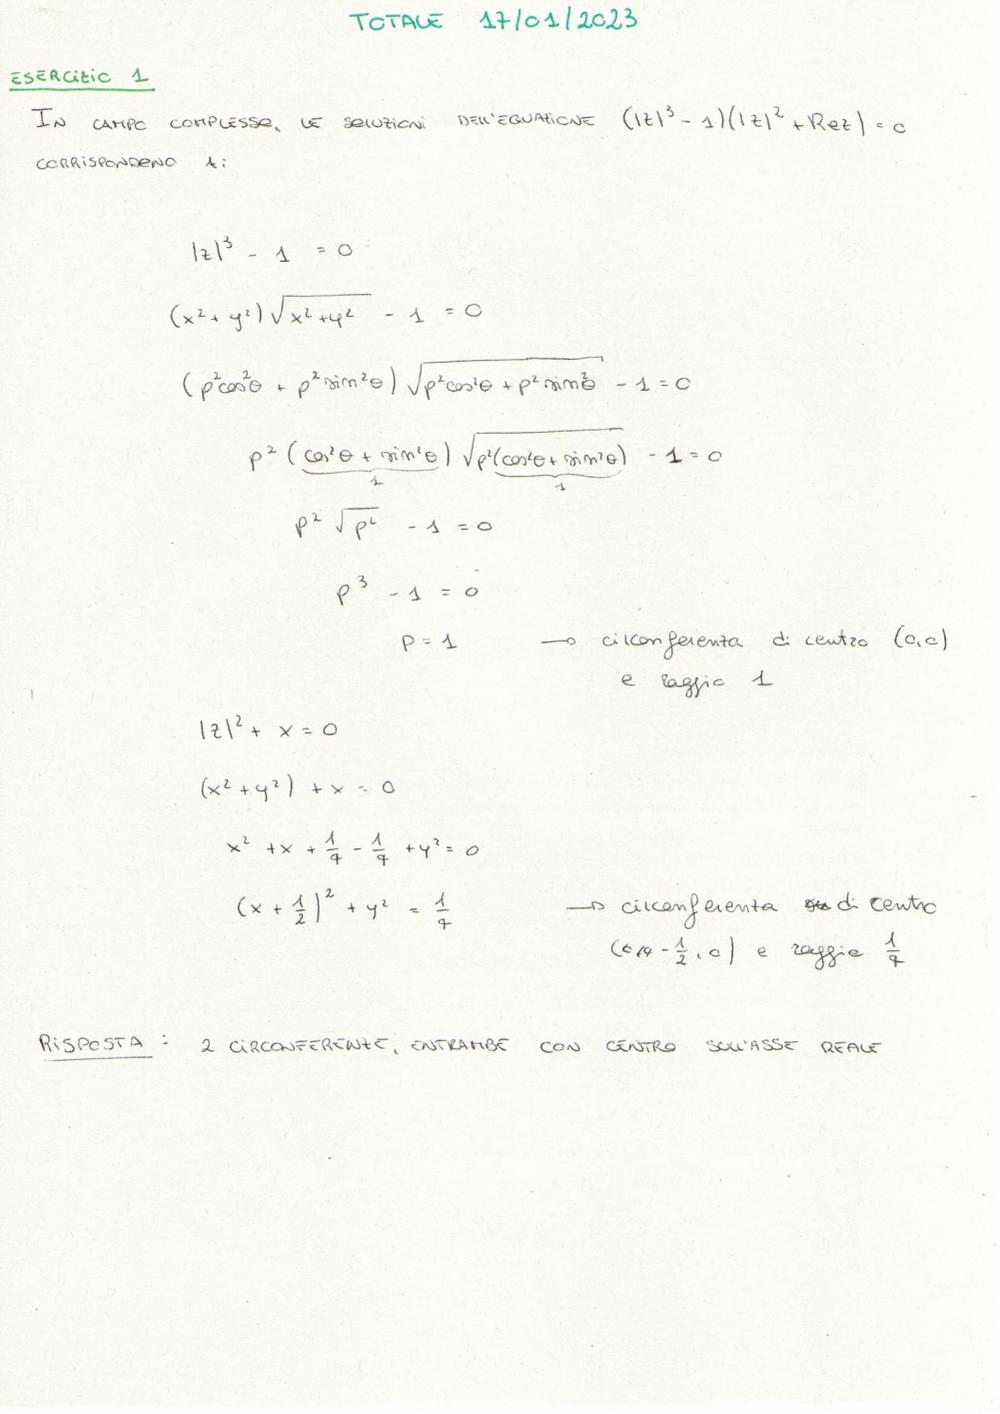 TOTALE 17/01/2023
ESERCIZIO 1
IN CAMPO COMPLESSO, LE SOLUZIONI DELL'EQUAZIONE (|z|³ - 1)(|z|² + Rez) = 0
CORRISPONDONO A:
|z|³ - 1 = 0
(x² + y²) √(x² + y²) - 1 = 0
(ρ²cos²θ + ρ²sin²θ) √(ρ²cos²θ + ρ²sin²θ) - 1 = 0
ρ² (cos²θ + sin²θ) √(ρ²(cos²θ + sin²θ)) - 1 = 0
1 1
ρ² √ρ² - 1 = 0
ρ³ - 1 = 0
ρ = 1 → circonferenza di centro (0,0)
e raggio 1
|z|² + x = 0
(x² + y²) + x = 0
x² + x + 1/4 - 1/4 + y² = 0
(x + 1/2)² + y² = 1/4 → circonferenza di centro
(-1/2, 0) e raggio 1/4
RISPOSTA : 2 CIRCONFERENZE, ENTRAMBE CON CENTRO SULL'ASSE REALE